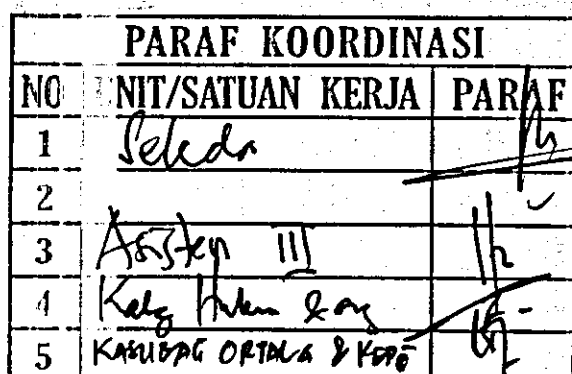 PARAF KOORDINASI
NO NIT/SATUAN KERJA PARAF
1 Sekda
2
3 Asisten III
4 Kabg Hukum & org
5 KASUBAG ORTALA & KEPE